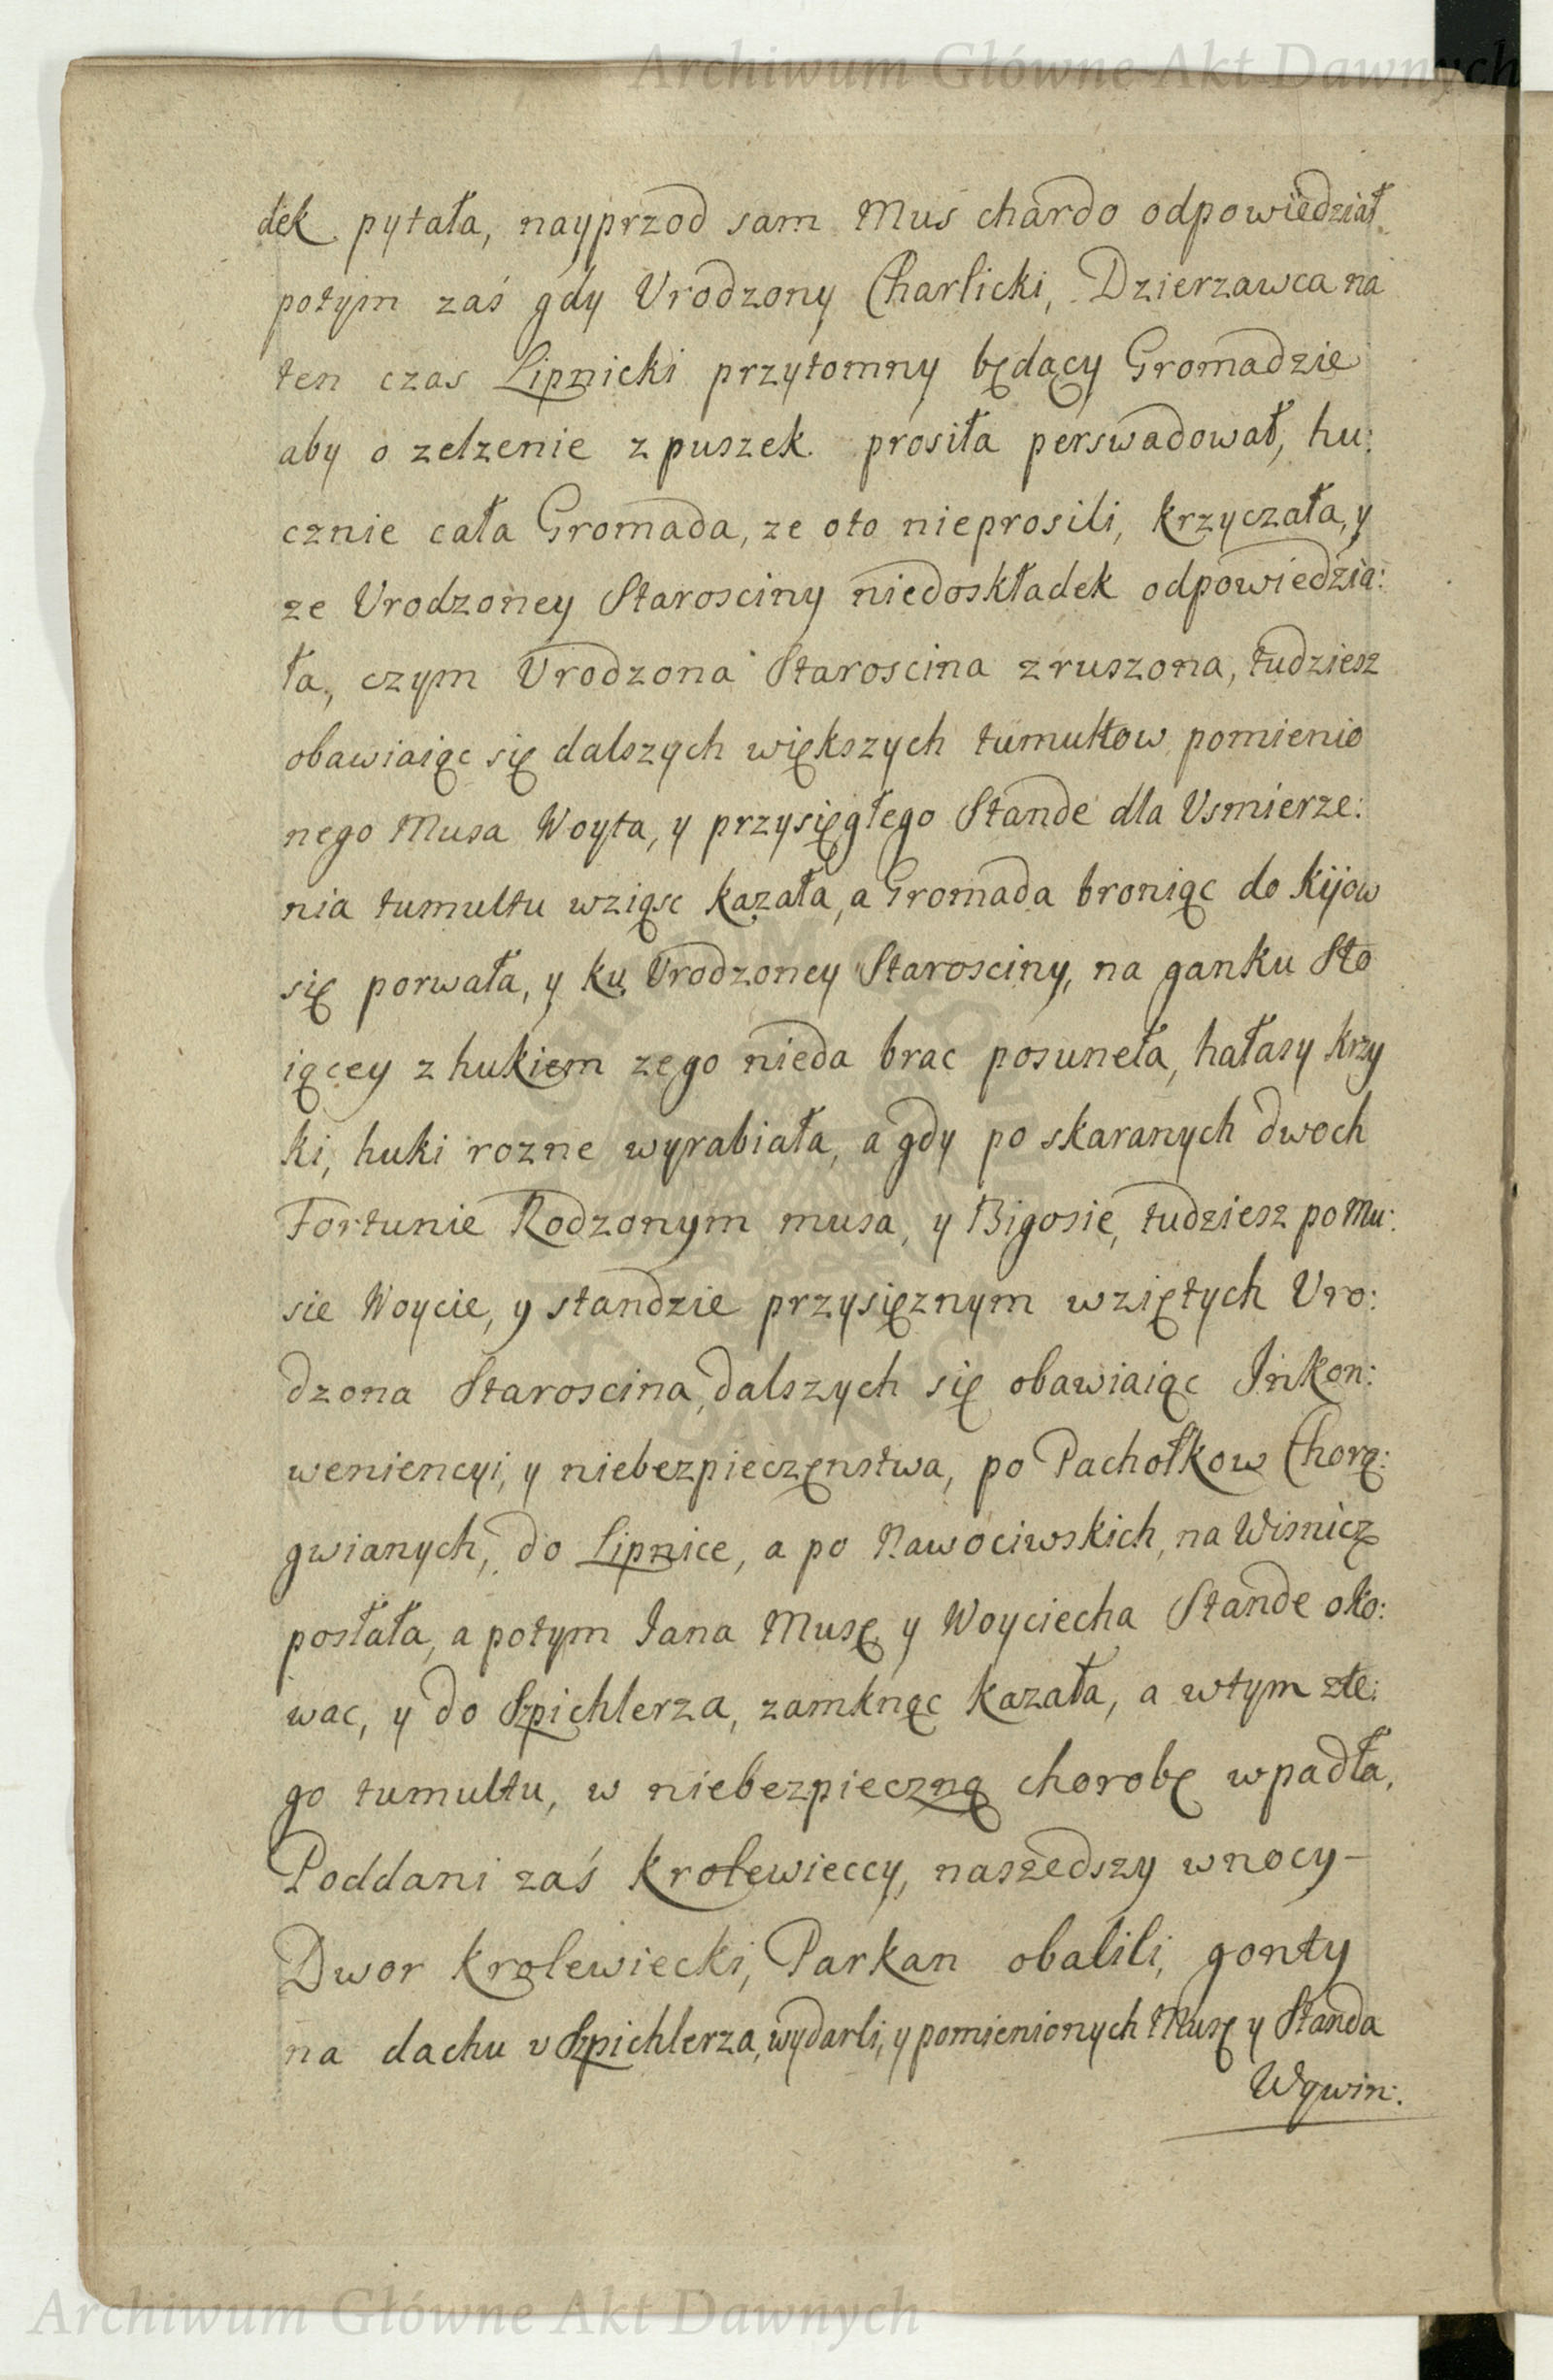 Archiwum Główne Akt Dawnych
dek pytała, nayprzod sam Mus chardo odpowiedział.
potym zaś gdy Vrodzony Charlicki, Dzierzawca na
ten czas Lipnicki przytomny będący Gromadzie
aby o zelzenie z puszek prosiła perswadował, hu:
cznie cała Gromada, ze oto nieprosili, krzyczała, y
ze Vrodzoney Starosciny niedoskładek odpowiedzia:
ła, czym Vrodzona Staroscina zruszona, tudziesz
obawiaiąc się dalszych większych tumultow pomienio
nego Musa Woyta, y przysięgłego Stande dla Vsmierze:
nia tumultu wziąsc kazała, a Gromada broniąc do Kijow
się porwała, y ku Vrodzoney Starosciny, na ganku Sto
iącey z hukiem zego nieda brac posuneła, hałasy krzy
ki, huki rozne wyrabiała, a gdy po skaranych dwoch
Fortunie Rodzonym musa, y Bigosie, tudziesz po Mu:
sie Woycie, y standzie przysięznym wziętych Vro:
dzona Staroscina, dalszych się obawiaiąc Inkon:
weniencyi, y niebezpieczęnstwa, po Pachołkow Chorą:
gwianych, do Lipnice, a po Nawociwskich, na Wisnicz
posłała, a potym Jana Musę y Woyciecha Stande oko:
wac, y do Szpichlerza, zamknąc kazała, a wtym zte:
go tumultu, w niebezpieczną chorobę wpadła,
Poddani zaś Krolewieccy, naszedszy wnocy–
Dwor Krolewiecki, Parkan obalili, gonty
na dachu v Szpichlerza, wydarli, y pomienionych Musę y Standa
Wywin:
Archiwum Główne Akt Dawnych